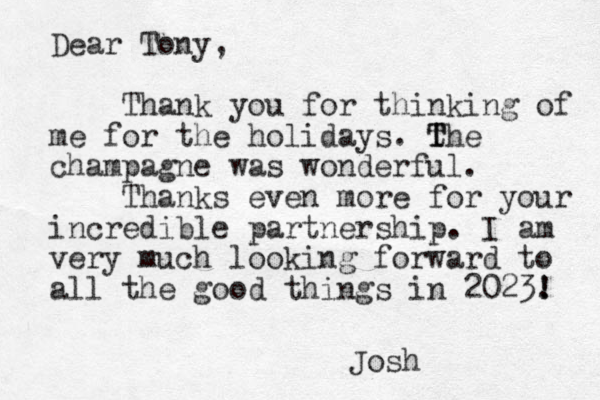 Dear Tony,
Thank you for thinking of
me for the holidays. The
champagne was wonderful.
Thanks even more for your
incredible partnership. I am
very much looking forward to
all the good things in 2023!
Josh